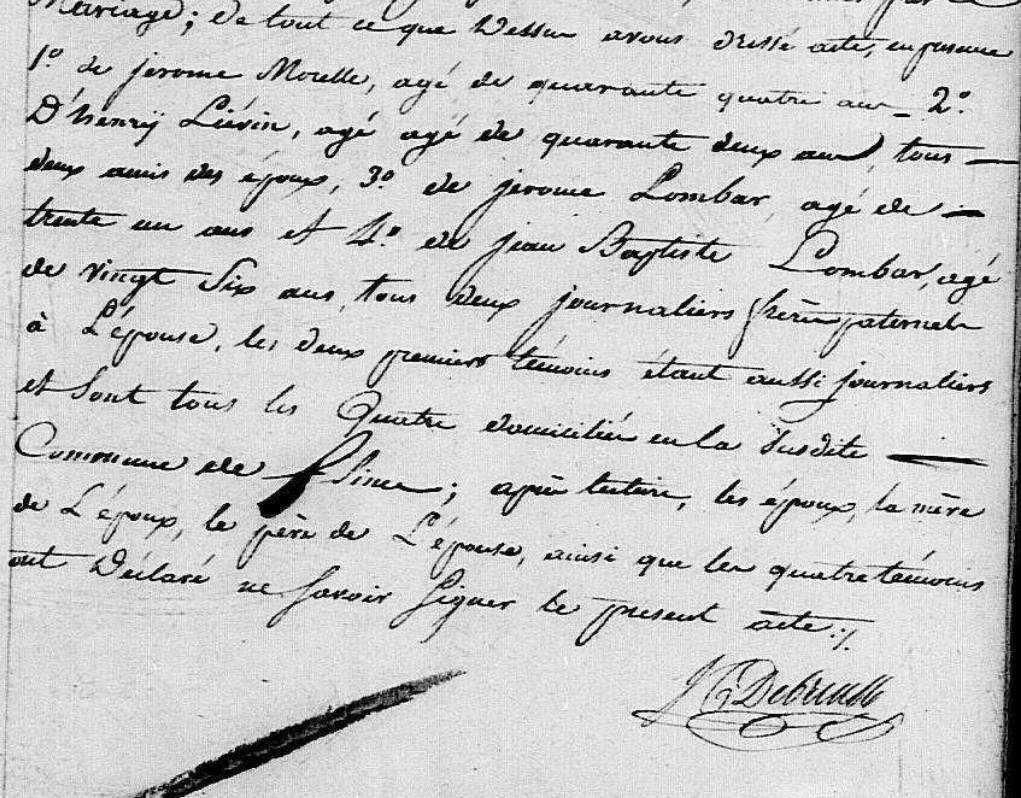 Mariage; de tout ce que Dessus avons dressé acte, en présence
1° de jerome Morelle, agé de quarante quatre ans _ 2°
D'henrÿ Liévin, agé agé de quarante deux ans, tous —
deux amis des époux, 3° de jerome Lombar, agé de —
trente un ans et 4° de jean Baptiste Lombar, agé
de vingt Six ans, tous deux journaliers frères paternels
à L'épouse, les deux premiers témoins étant aussi journaliers
et Sont tous les Quatre domiciliés en la Susdite —
Commune de flines; après lecture, les époux, la mère
de L'époux, le père de L'épouse, ainsi que les quatre témoins
ont Déclaré ne Savoir Signer le present acte./.